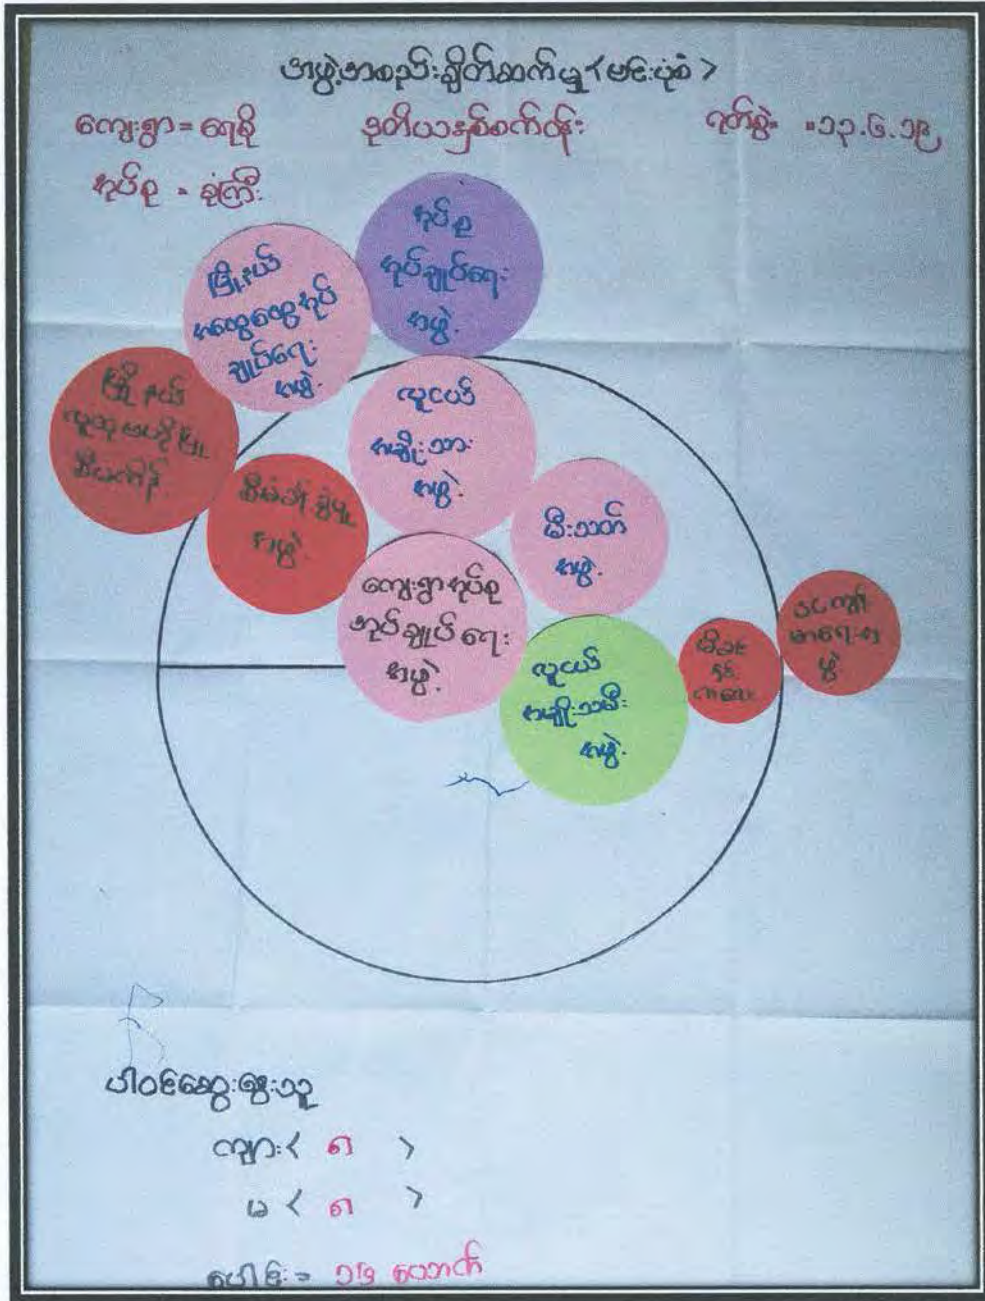 အဖွဲ့အစည်းချိတ်ဆက်မှု (ဗင်းပုံစံ)
ကျေးရွာ = ရေစို ဒုတိယနှစ်စက်ဝန်း ရက်စွဲ = ၁၃.၆.၁၉
အုပ်စု = ခုံကြီး
အုပ်စု
အုပ်ချုပ်ရေး
အဖွဲ့
မြို့နယ်
အထွေထွေအုပ်
ချုပ်ရေး
အဖွဲ့
မြို့နယ်
လူထုဗဟိုပြု
စီမံကိန်း
လူငယ်
အမျိုးသား
အဖွဲ့
စီမံခန့်ခွဲမှု
အဖွဲ့
မီးသတ်
အဖွဲ့
ကျေးရွာအုပ်စု
အုပ်ချုပ်ရေး
အဖွဲ့
လူငယ်
အမျိုးသမီး
အဖွဲ့
မိခင်
နှင့်
ကလေး
ကျန်း
မာရေးအ
ဖွဲ့
ပါဝင်ဆွေးနွေးသူ
ကျား ( ၈ )
မ ( ၈ )
ပေါင်း =